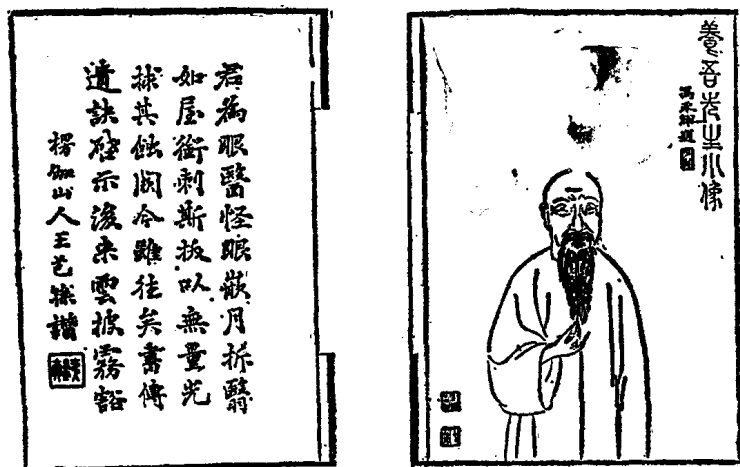 養吾先生小像
題
君為眼醫怪眼嵌月折翳
如屋銜刺斯拔以無量光
捄其蝕闕今雖往矣書傳
遺訣啓示後來雲披霧豁
楞伽山人王芑孫